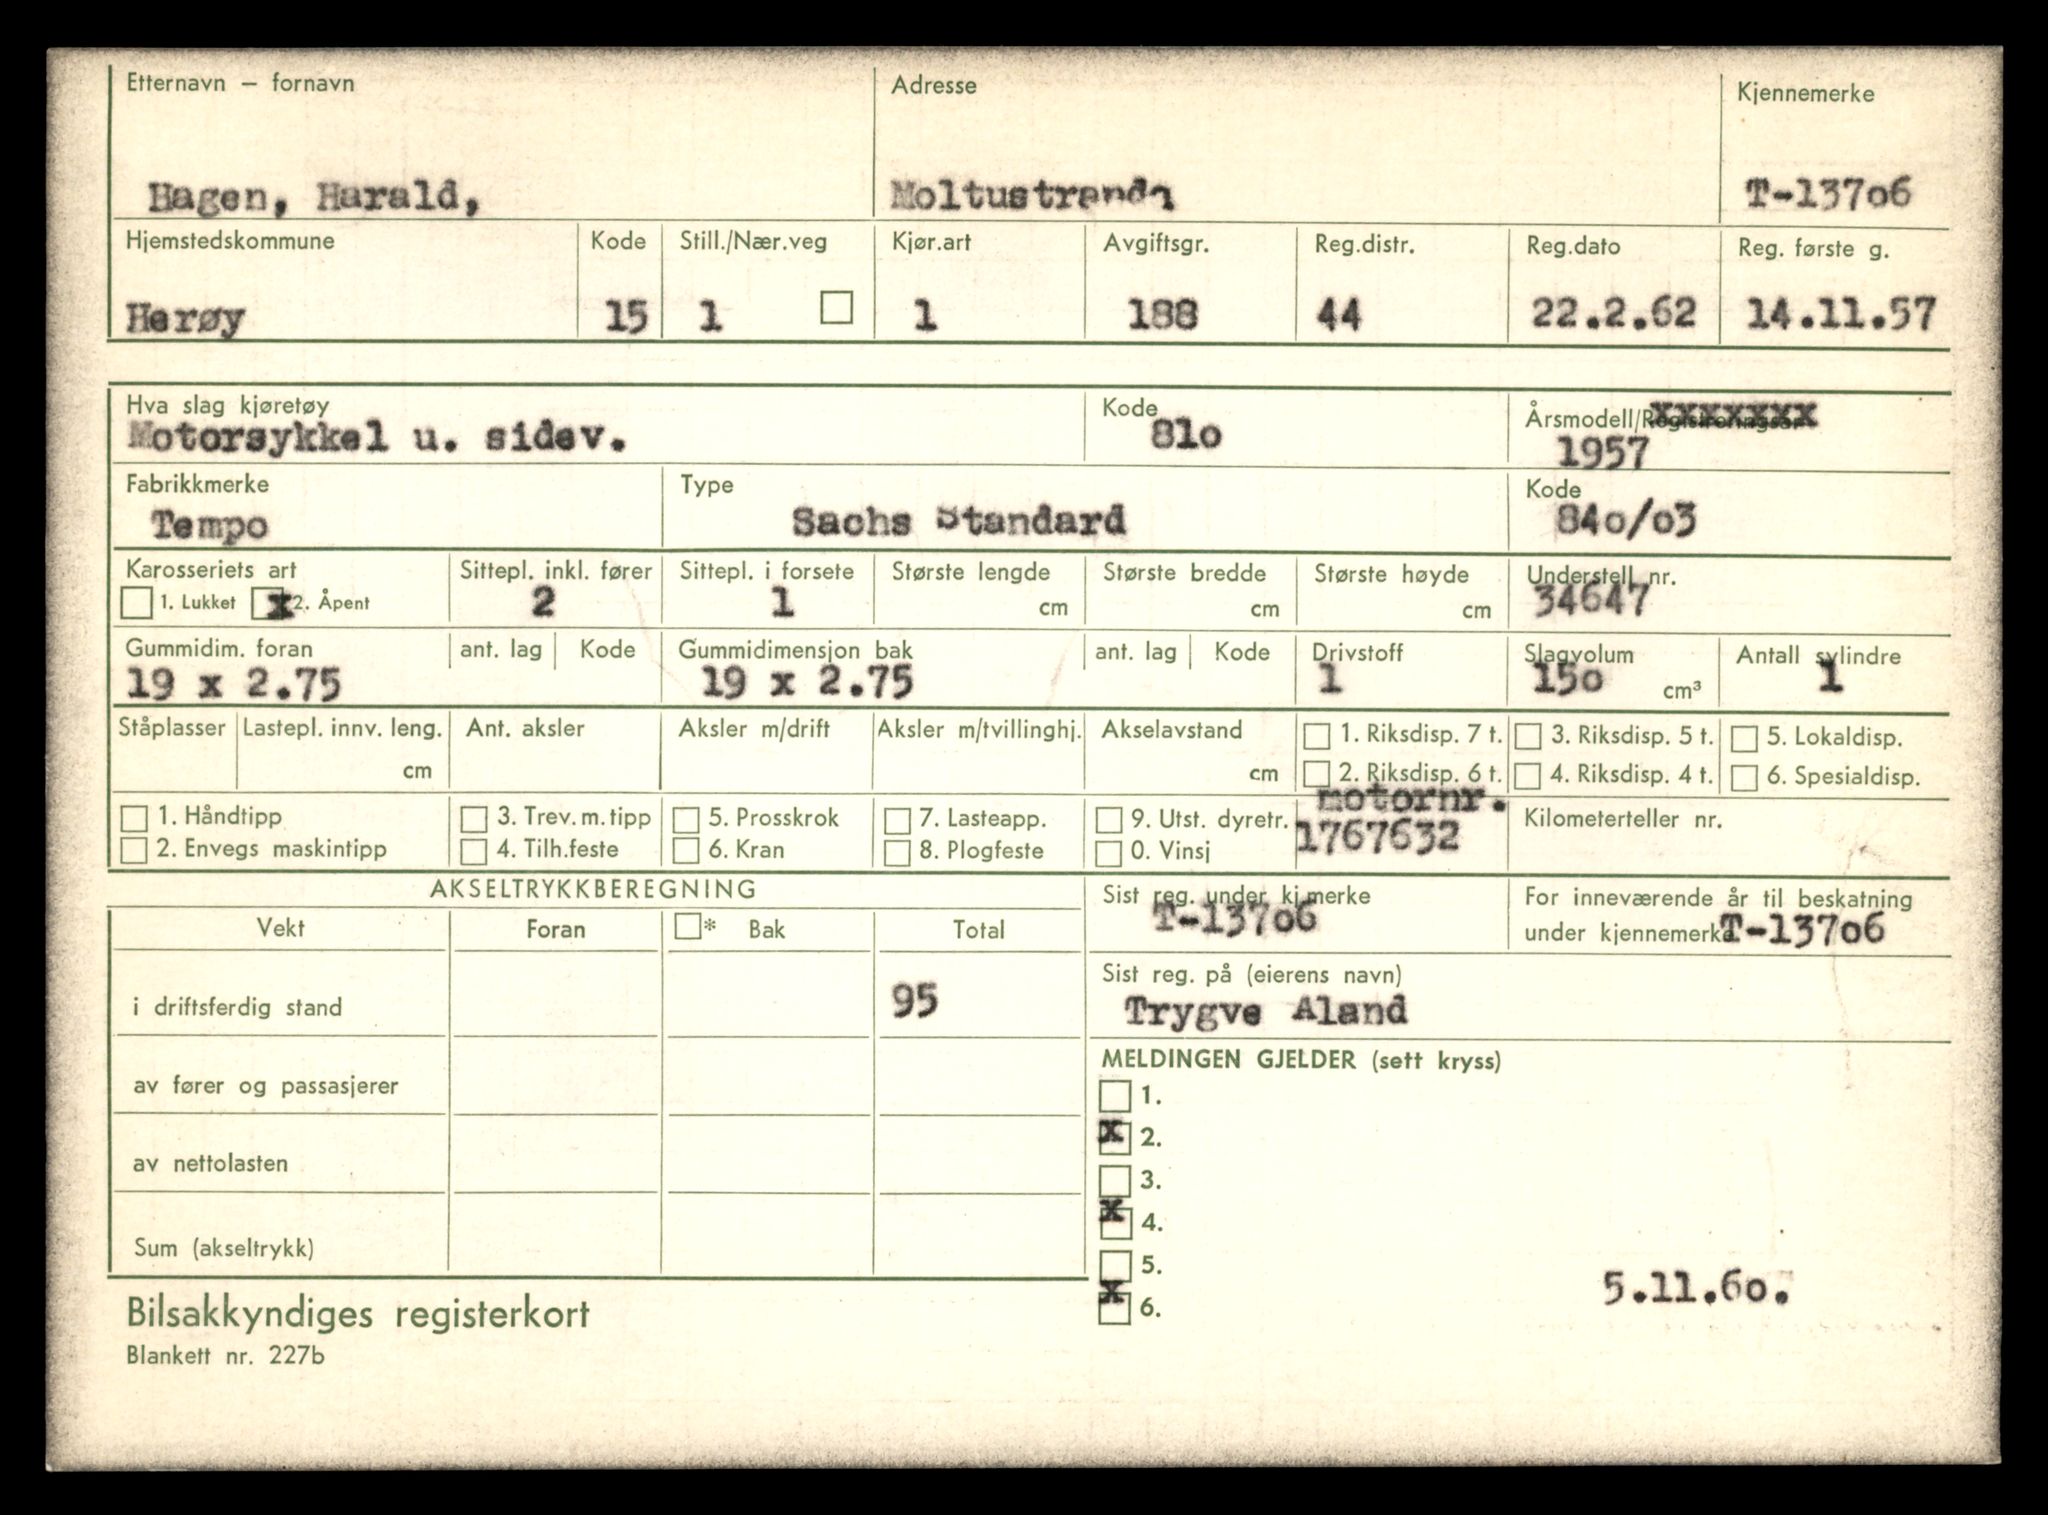 Etternavn – fornavn Adresse Kjennemerke
Hagen, Harald, Moltustranda T-13706
Hjemstedskommune Kode Still./Nær.veg Kjør.art Avgiftsgr. Reg.distr. Reg.dato Reg. første g.
Herøy 15 1 1 188 44 22.2.62 14.11.57
Hva slag kjøretøy Kode Årsmodell/Registreringsår
Motorsykkel u. sidev. 81o xxxxxxx
1957
Fabrikkmerke Type Kode
Tempo Sachs Standard 84o/o3
Karosseriets art Sittepl. inkl. fører Sittepl. i forsete Største lengde Største bredde Største høyde Understell nr.
1. Lukket x 2. Åpent 2 1 cm cm cm 34647
Gummidim. foran ant. lag Kode Gummidimensjon bak ant. lag Kode Drivstoff Slagvolum Antall sylindre
19 x 2.75 19 x 2.75 1 15o cm³ 1
Ståplasser Lastepl. innv. leng. Ant. aksler Aksler m/drift Aksler m/tvillinghj. Akselavstand 1. Riksdisp. 7 t. 3. Riksdisp. 5 t. 5. Lokaldisp.
cm cm 2. Riksdisp. 6 t. 4. Riksdisp. 4 t. 6. Spesialdisp.
motornr.
1. Håndtipp 3. Trev. m. tipp 5. Prosskrok 7. Lasteapp. 9. Utst. dyretr. 1767632 Kilometerteller nr.
2. Envegs maskintipp 4. Tilh.feste 6. Kran 8. Plogfeste 0. Vinsj
AKSELTRYKKBEREGNING Sist reg. under kj.merke For inneværende år til beskatning
Vekt Foran * Bak Total T-137o6 under kjennemerke T-137o6
Sist reg. på (eierens navn)
i driftsferdig stand 95 Trygve Aland
MELDINGEN GJELDER (sett kryss)
av fører og passasjerer 1.
x 2.
av nettolasten 3.
x 4.
Sum (akseltrykk) 5.
x 6. 5.11.6o.
Bilsakkyndiges registerkort
Blankett nr. 227b